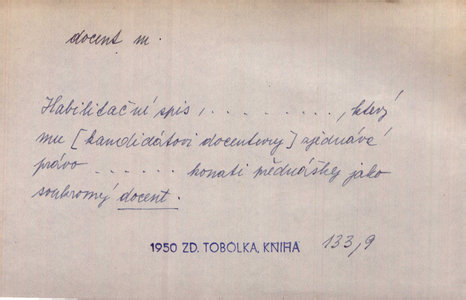 docent m.
Habilitační spis, . . . . . . . . . , který
mu [kandidátovi docentury] zjednává
právo . . . . . . konati přednášky jako
soukromý docent.
1950 ZD. TOBOLKA, KNIHA 133,9